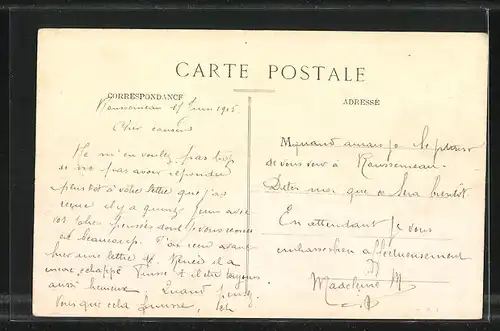 CARTE POSTALE
CORRESPONDANCE
ADRESSÉ
17 Juin 1915
Cher cousin
Ne m'en voulez pas trop
de ne pas avoir répondu
plus tôt à votre lettre que j'ai
reçue il y a quinze jours avec
vos chères pensées dont je vous remercie
beaucoup. J'ai reçu avant
hier une lettre de René il a
encore échappé Puisse t il être toujours
aussi heureux Quand
Vous que cela finisse,
Quand aurais je le plaisir
de vous voir à
Dites moi que ce sera bientôt.
En attendant je vous
embrasse bien affectueusement
Madeleine M